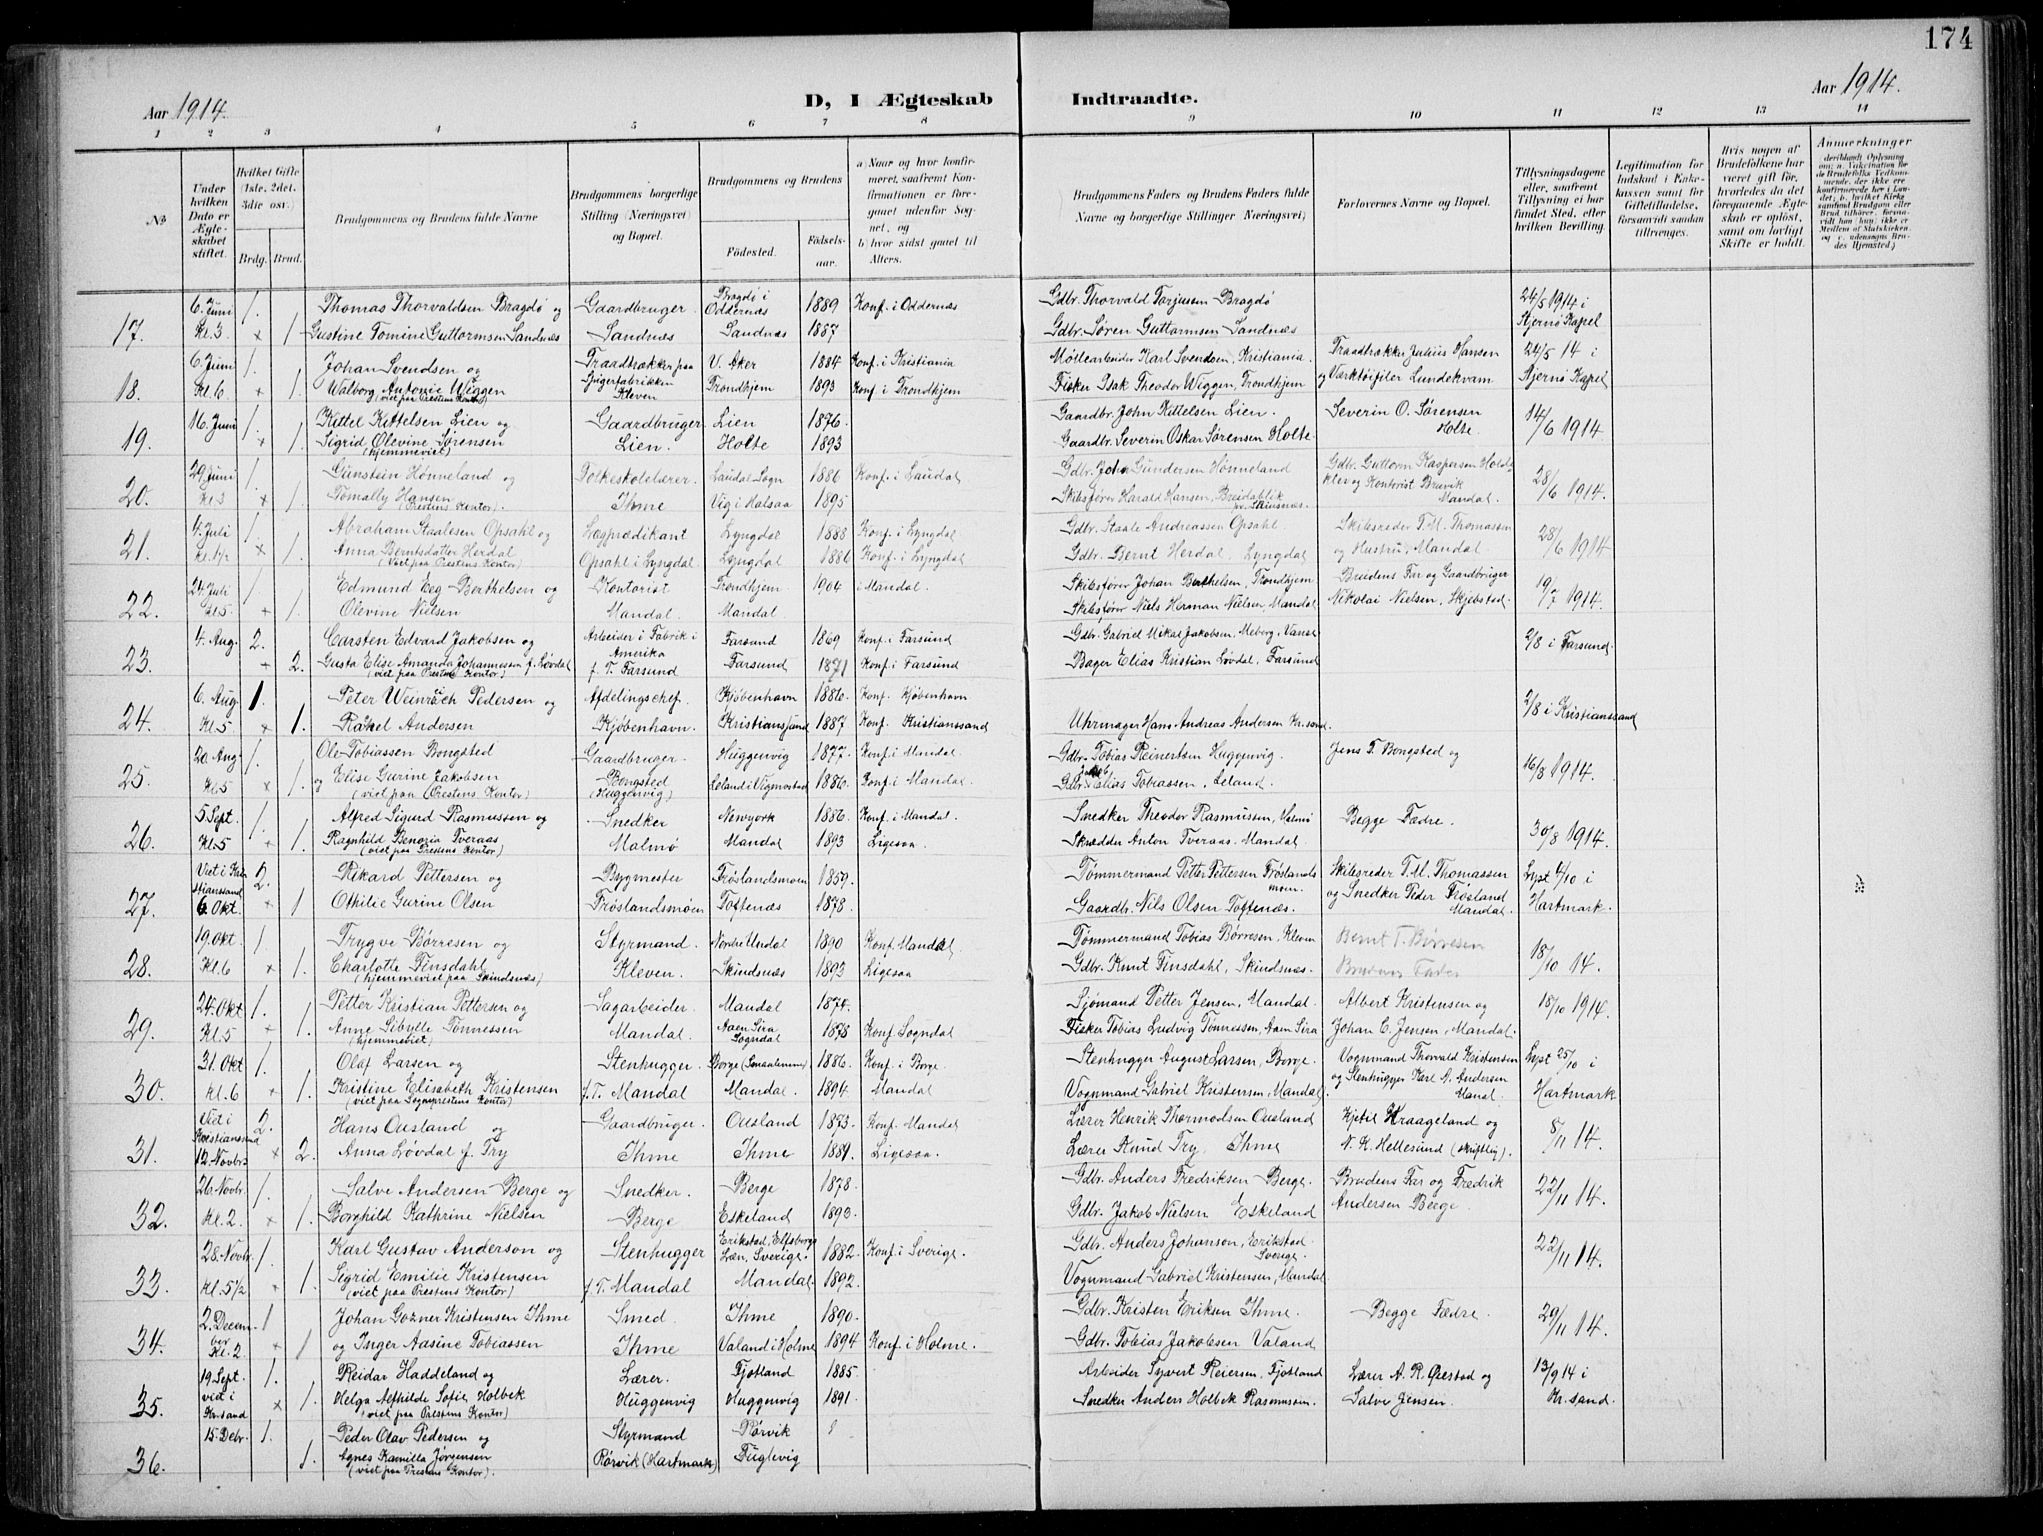 174
Aar 1914.
D, I Ægteskab
Indtraadte.
Aar 1914.
1 2 3 4 5 6 7 8 9 10 11 12 13 14
No
Under hvilken Dato er Ægteskabet stiftet.
Hvilket Gifte (1ste, 2det, 3die osv.)
Brdg. Brud.
Brudgommens og Brudens fulde Navne
Brudgommens borgerlige Stilling (Næringsvei) og Bopæl.
Brudgommens og Brudens
Fødested.
Fødselsaar.
a) Naar og hvor konfirmeret, saafremt Konfirmationen er foregaaet udenfor Sognet, og
b) hvor sidst gaaet til Alters.
Brudgommens Faders og Brudens Faders fulde Navne og borgerlige Stillinger Næringsvei)
Forlovernes Navne og Bopæl.
Tillysningsdagene eller, saafremt Tillysning ei har fundet Sted, efter hvilken Bevilling.
Legitimation for Indskud i Enkekassen samt for Giftetilladelse, forsaavidt saadan tiltrænges.
Hvis nogen af Brudefolkene har været gift før, hvorledes da det foregaaende Ægteskab er opløst, samt om lovligt Skifte er holdt.
Anmerkninger
17. 6. Juni 1. Thomas Thorvaldsen Bragdø og Gaardbruger. Bragdø i Oddernæs 1889 Konf. i Oddernæs Gdbr. Thorvald Torjusen Bragdø 24/5 1914 i
Kl. 3 × 1 Gustine Tomine Guttormsen Sandnæs Sandnæs Sandnæs 1887 Gdbr. Søren Guttormsen Sandnæs Stjernø Kapel
18. 6. Juni 1. Johan Svendsen og Traadtrækker paa V. Aker 1884 Konf. i Kristiania Møllearbeider Karl Svendsen, Kristiania. Traadtrækker Julius Hansen 24/5 14 i
Kl. 6 × 1. Walborg Antonie Wiggen Spigerfabrikken Kleven Trondhjem 1893 Konf. i Trondhjem Fisker Isak Theodor Wiggen, Trondhjem og Værktøifiler Lundekvam Stjernø Kapel
(viet paa Prestens Kontor)
19. 16. Juni 1. Kittel Kittelsen Lien og Gaardbruger Lien 1876. Gaardbr. John Kittelsen Lien. Severin O. Sørensen Holte. 14/6 1914.
× 1. Sigrid Olevine Sørensen Lien. Holte 1893 Gaardbr. Severin Oskar Sørensen Holte
(hjemmeviet)
20. 29 Juni 1. Gunstein Hønneland og Folkeskolelærer. Laudal Sogn 1886 Konf. i Laudal Gdbr. John Gundersen Hønneland Gdbr. Guttorm Kaspersen 28/6 1914.
Kl. 3 × 1. Tomally Hansen Ihme Vig i Halsaa 1895 Skibsfører Harald Hansen, Breidablik og Kontorist Bruvik Mandal.
(Prestens Kontor)
21. 4. Juli 1. Abraham Staalesen Opsahl og Lægprædikant Lyngdal 1888 Konf. i Lyngdal Gdbr. Staale Andreassen Opsahl. Skibsreder T. M. Thomassen 28/6 1914
× 1. Anna Berntsdatter Herdal Opsahl i Lyngdal. Lyngdal 1886 Konf. i Lyngdal Gdbr. Bernt Herdal, Lyngdal og Hustru, Mandal.
(Viet paa Prestens Kontor)
22. 24. Juli 1. Edmund Eeg-Berthelsen og Kontorist Trondhjem i Mandal. Skibsfører Johan Berthelsen, Trondhjem Brudens Far og Gaardbruger 19/7 1914.
Kl. 5 × 1. Olevine Nielsen Mandal. Mandal Skibsfører Niels Herman Nielsen, Mandal Nikolai Nielsen, Skjebstad.
23. 4. Aug. 2. Carsten Edvard Jakobsen og Arbeider i Fabrik i Amerika Farsund 1869 Konf. i Farsund Gdbr. Gabriel Mikal Jakobsen, Meberg, Vanse 2/8 i Farsund.
× 2. Gusta Elise Amanda Johannessen f. Løvdal f. T. Farsund Farsund 1871 Konf. i Farsund Bager Elias Kristian Løvdal, Farsund
(viet paa Prestens Kontor)
24. 6. Aug. 1. Peter Weinrich Pedersen og Afdelingschef. Kjøbenhavn 1886. Konf. Kjøbenhavn 2/8 i Kristianssand
Kl. 5 × 1. Rakel Andersen Kjøbenhavn. Kristianssund 1887 Konf. Kristianssand Uhrmager Hans Andreas Andersen Kr.sand.
25. 20. Aug. 1. Ole Tobiassen Bongsted Gaardbruger. Huggenvig 1877. Konf. i Mandal Gdbr. Tobias Reinertsen Huggenvig Jens T. Bongsted og 16/8 1914.
Kl. 5 × 1. og Elise Gurine Jakobsen Bongsted (Huggenvig) Leland i Vigmostad 1886. Konf. i Mandal. Gdbr. Jakob Tobiassen, Leland.
(viet paa Prestens Kontor)
26. 5. Sept. 1. Alfred Sigurd Rasmussen og Snedker Newyork 1886. Konf. i Mandal. Snedker Theodor Rasmussen, Malmø Begge Fædre. 30/8 1914.
Kl. 5 × 1. Ragnhild Benoria Tveraas Malmø Mandal 1893 Ligesaa Skrædder Anton Tveraas. Mandal.
(viet paa Prestens Kontor)
27. Viet i Kristianssand 2. Rikard Pettersen og Bygmester Frøslandsmoen 1859. Tømmermand Petter Pettersen Frøslandsmoen. Skibsreder T. M. Thomassen Lyst 4/10 i
6. Okt. × 1 Othilie Gurine Olsen Frøslandsmoen Toftenæs 1878 Gaardbr. Nils Olsen Toftenæs. og Snedker Peder Frøsland Mandal. Hartmark.
28. 19. Okt. 1. Trygve Børresen og Styrmand. Nordre Undal 1890 Konf. Mandal. Tømmermand Tobias Børresen, Kleven Bernt T. Børresen 18/10 14.
Kl. 6 × 1. Charlotte Finsdahl Kleven. Skindsnæs 1893 Ligesaa Gdbr. Knut Finsdahl, Skindsnæs. Brudens Fader
(hjemmeviet paa Skindsnæs)
29. 24. Okt 1. Petter Kristian Pettersen og Sagarbeider. Mandal 1874. Sjømand Petter Jensen, Mandal. Albert Kristensen og 18/10 1914
Kl. 5 × 1. Anne Sibylle Tønnessen Mandal. Aaen Sira Sogndal 1878 Konf. Sogndal Fisker Tobias Ludvig Tønnessen, Aaen Sira Johan C. Jensen, Mandal.
(hjemmeviet)
30. 31. Okt 1. Olaf Larsen og Stenhugger. Borge (Smaalenene) 1886. Konf. i Borge Stenhugger August Larsen, Borge. Vognmand Thorvald Kristensen Lyst 25/10 i
Kl. 6 × 1. Kristine Elisabeth Kristensen f. T. Mandal Mandal. 1894. Mandal Vognmand Gabriel Kristensen, Mandal. og Stenhugger Karl G. Andersen Mandal. Hartmark
(viet paa Sogneprestens Kontor)
31. Vid i Kristianssand 2. Hans Ousland og Gaardbruger. Ousland 1873. Konf. Mandal Lærer Henrik Thormodsen Ousland Kjetil Kraageland og 8/11 14.
12. Novbr. × 2. Anna Løvdal f. Try Ihme Ihme 1889. Ligesaa. Lærer Aanud Try, Ihme N. K. Hellesund (skriftlig).
32. 26. Novbr. 1. Salve Andersen Berge og Snedker. Berge 1878. Gdbr. Anders Fredriksen Berge. Brudens Far og Fredrik 22/11 14.
Kl. 2. × 1. Borghild Kathrine Nielsen Berge Eskeland 1893. Gdbr. Jakob Nielsen Eskeland Andersen Berge.
33. 28. Novbr. 1. Karl Gustav Anderson og Stenhugger Erikstad, Elfsborgs Læn, Sverige. 1882. Konf. i Sverige. Gdbr. Anders Johanson, Erikstad Sverige. 22/11 14.
Kl. 5 1/2 × 1. Sigrid Emilie Kristensen f. T. Mandal Mandal. 1892. Vognmand Gabriel Kristensen, Mandal
(viet paa Prestens Kontor)
34. 2. December 1 Johan Gozner Kristensen Ihme Smed. Ihme 1890. Gdbr. Kristen Eriksen Ihme. Begge Fædre. 29/11 14.
Kl. 2 × 1 og Inger Aasine Tobiassen Ihme Valand i Holme 1894 Konf. i Holme. Gdbr. Tobias Jakobsen Valand
35. 19. Sept. 1. Reidar Haddeland og Lærer. Fjotland 1885 Arbeider Syvert Reiersen, Fjotland Lærer A. R. Ørestad og 13/9 14 i
viet i Kr.sand × 1. Helga Alfhilde Sofie Holbek Huggenvig Huggenvig 1891. Snedker Anders Holbek Rasmussen. Salve Jensen. Kr.sand.
(viet paa Prestens Kontor)
36. 15. Debr. 1. Peder Olav Pedersen og Styrmand Rørvik
1. Agnes Kamilla Jørgensen Rørvik (Hartmark) Fuglevig
(viet paa Prestens Kontor).